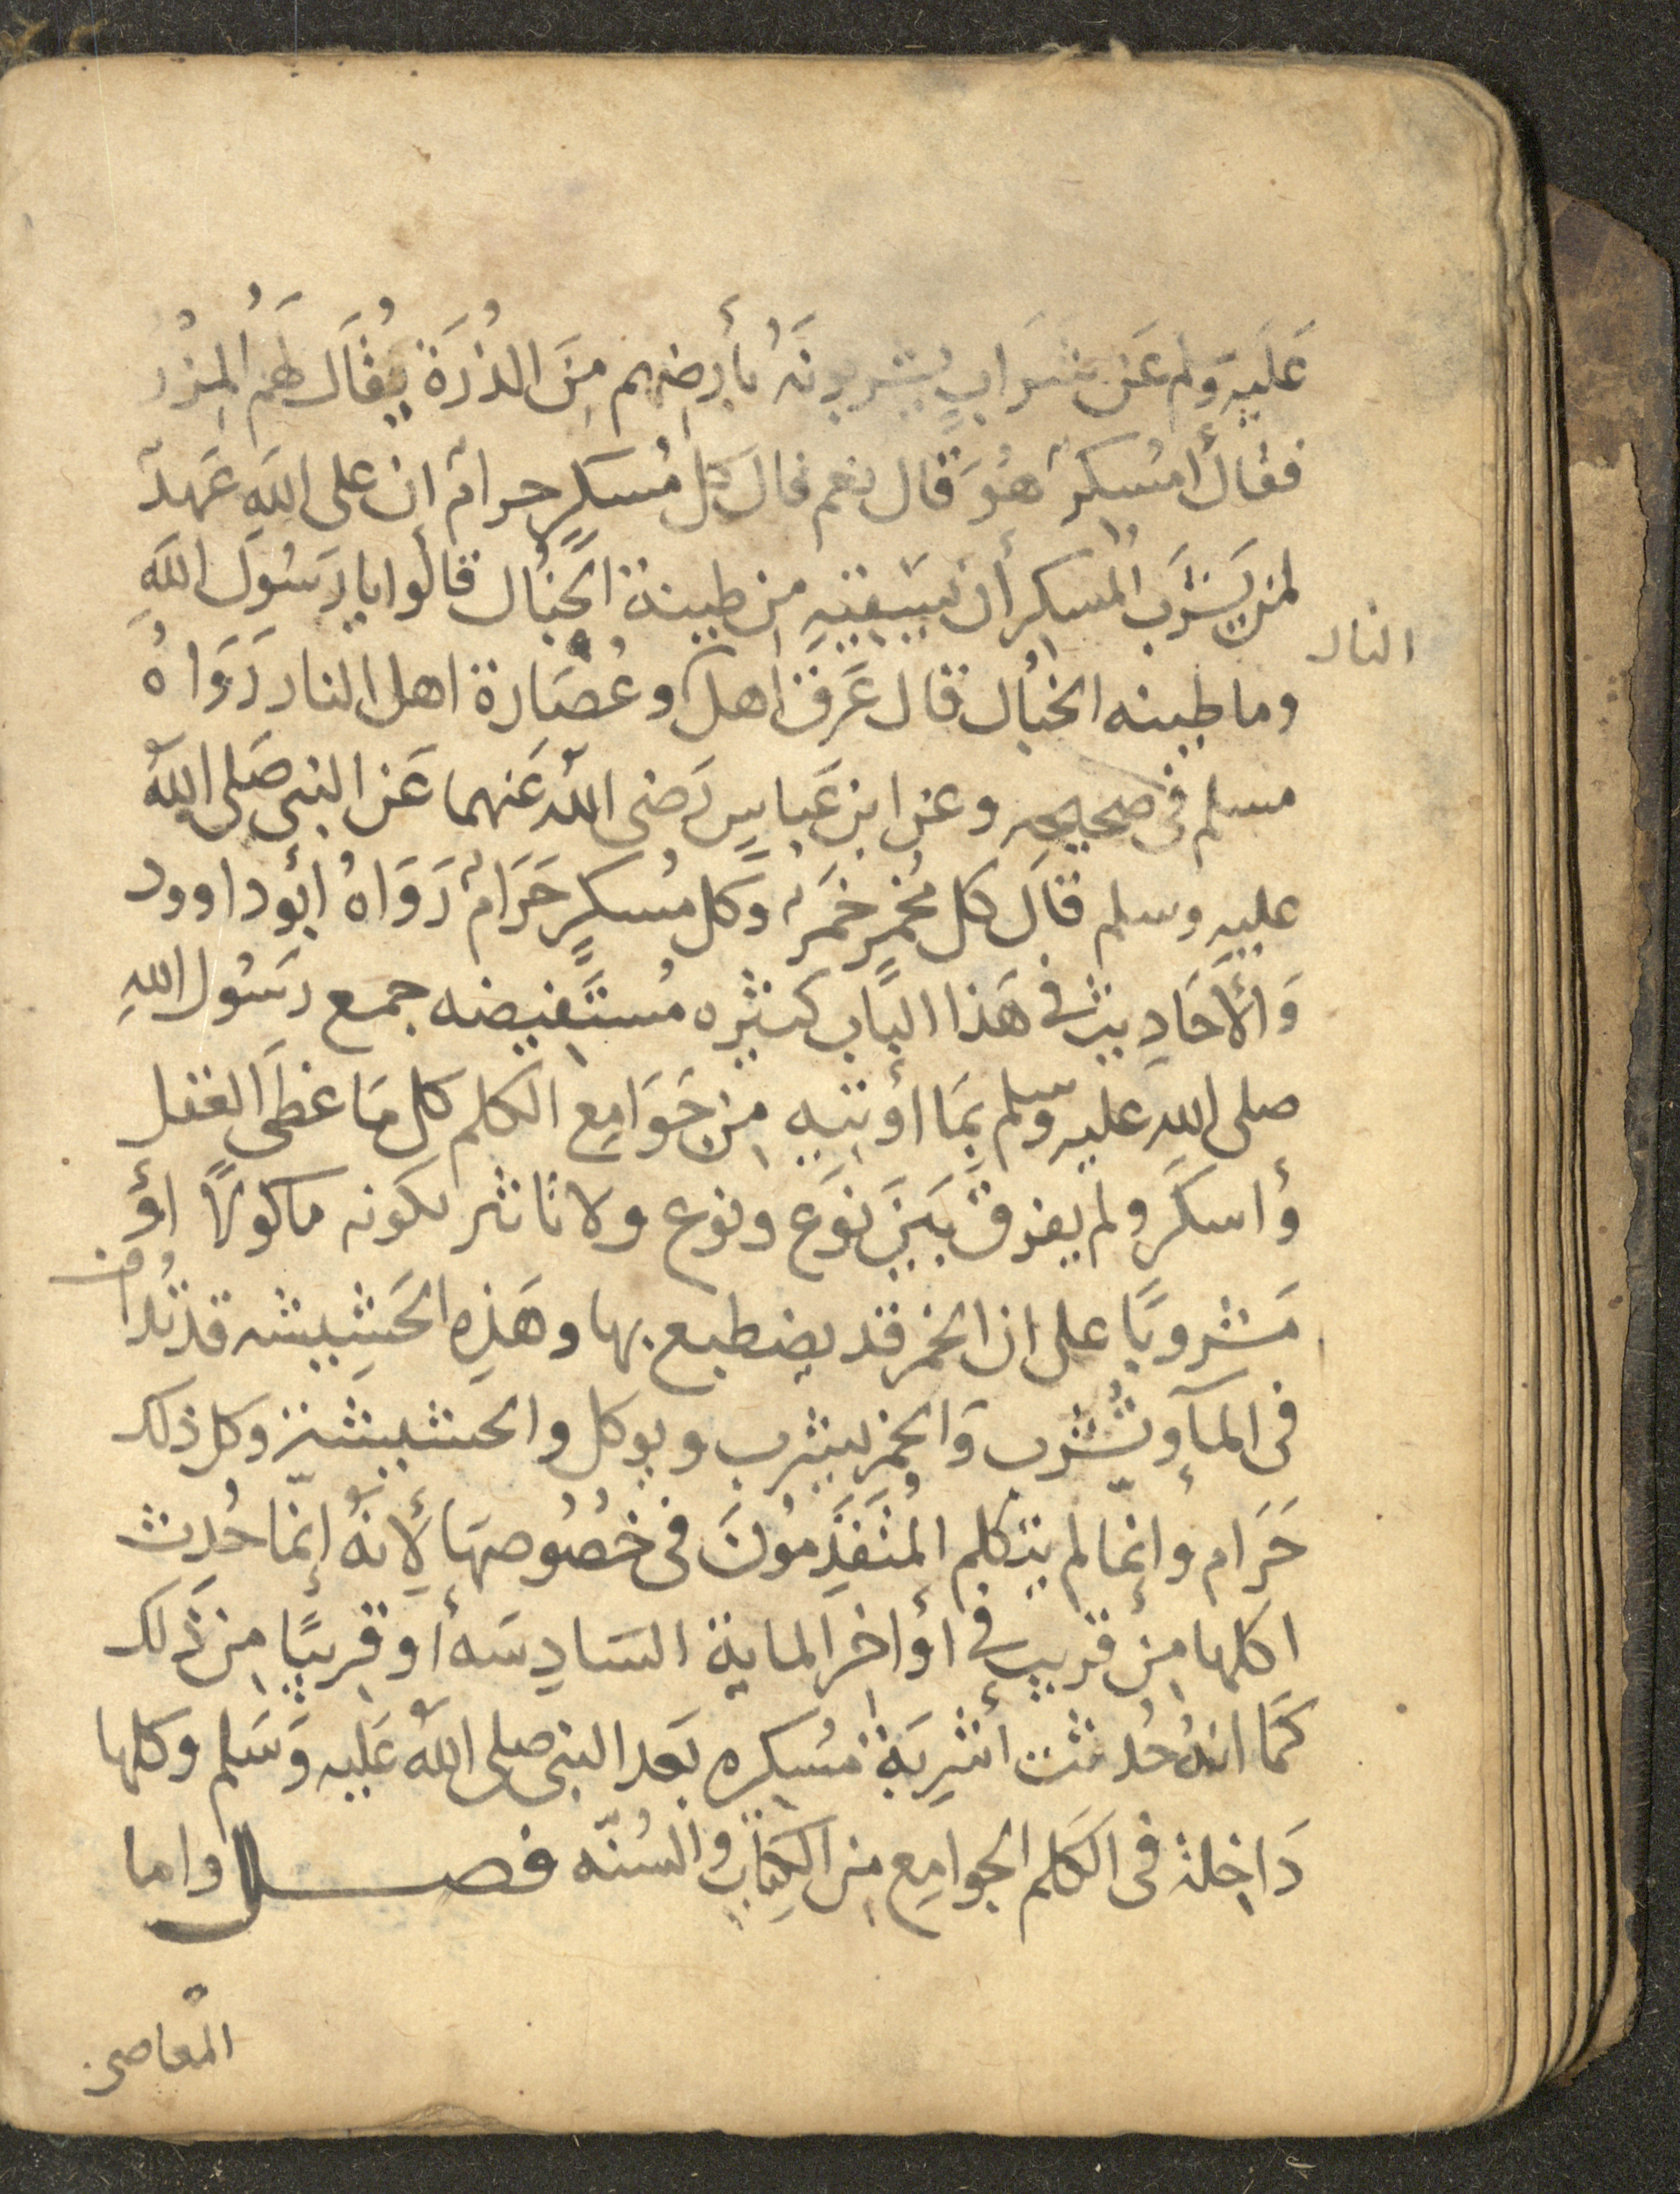 عَلَيهِ وَلم عَن شَرَابٍ يشربونَهُ بأرضِهم مِنَ الذُرَةَ يُقَال لَهُمُ المِزْرُ
فقال أَمُسكِرٌ هُوَ قال نعم فقالَ كل مُسكرٍ حرامٌ ان على اللهِ عَهدً
لمن يَشرَب المُسكِر أن يَسقِيَهِ مِن طينة الخَبَال قالُوا يا رَسُولَ اللهِ
وما طينه الخبال قال عَرَق اهل و عُصَارة اهل النار رَوَاهُ
النار
مسلم فى صحيحه وعن ابن عَباسٍ رَضى اللهُ عَنهما عَن النبى صَلى اللهُ
عليهِ وسلم قالَ كل مُخمرٍ خَمرٌ وَكل مُسكرٍ حَرَامٌ رَوَاهُ أبُو داوود
وَالأَحَاديث فى هَذا البَاب كثيره مُستَفِيضه جمع رسُول اللهِ
صلى الله عليه وسلم بمَا أوتيه مِن جَوَامِع الكلم كل مَا غَطى العقل
وأسكَر ولم يفرق بَينَ نَوَع ونوع ولا تاثير لكونه ماكولاً أوْ
مَشروبًا على ان الخمر قد يضطبع بها وهَذِهِ الحَشِيشه قد تُدافُ
فى المآ وتُشرب وَالخمر يشرب ويوكل والحشيشة وكل ذلك
حَرَام وإنما لم يتكلم المُتَقَدِّمُونَ فى خُصُوصهَا لأَنهُ إنّما حُدِث
اكلها مِن قريب فى أواخر الماية السَادِسَه أو قَرِيبًا مِن ذَلك
كَمَا انهُ حُدثت أَشرِبَة مُسكِره بَعد النبى صلى اللهُ عَليه وَسَلم وكلها
دَاخِلة فى الكَلم الجوامِع مِن الكِتَابِ والسُنّه فصل واما
المعاصى